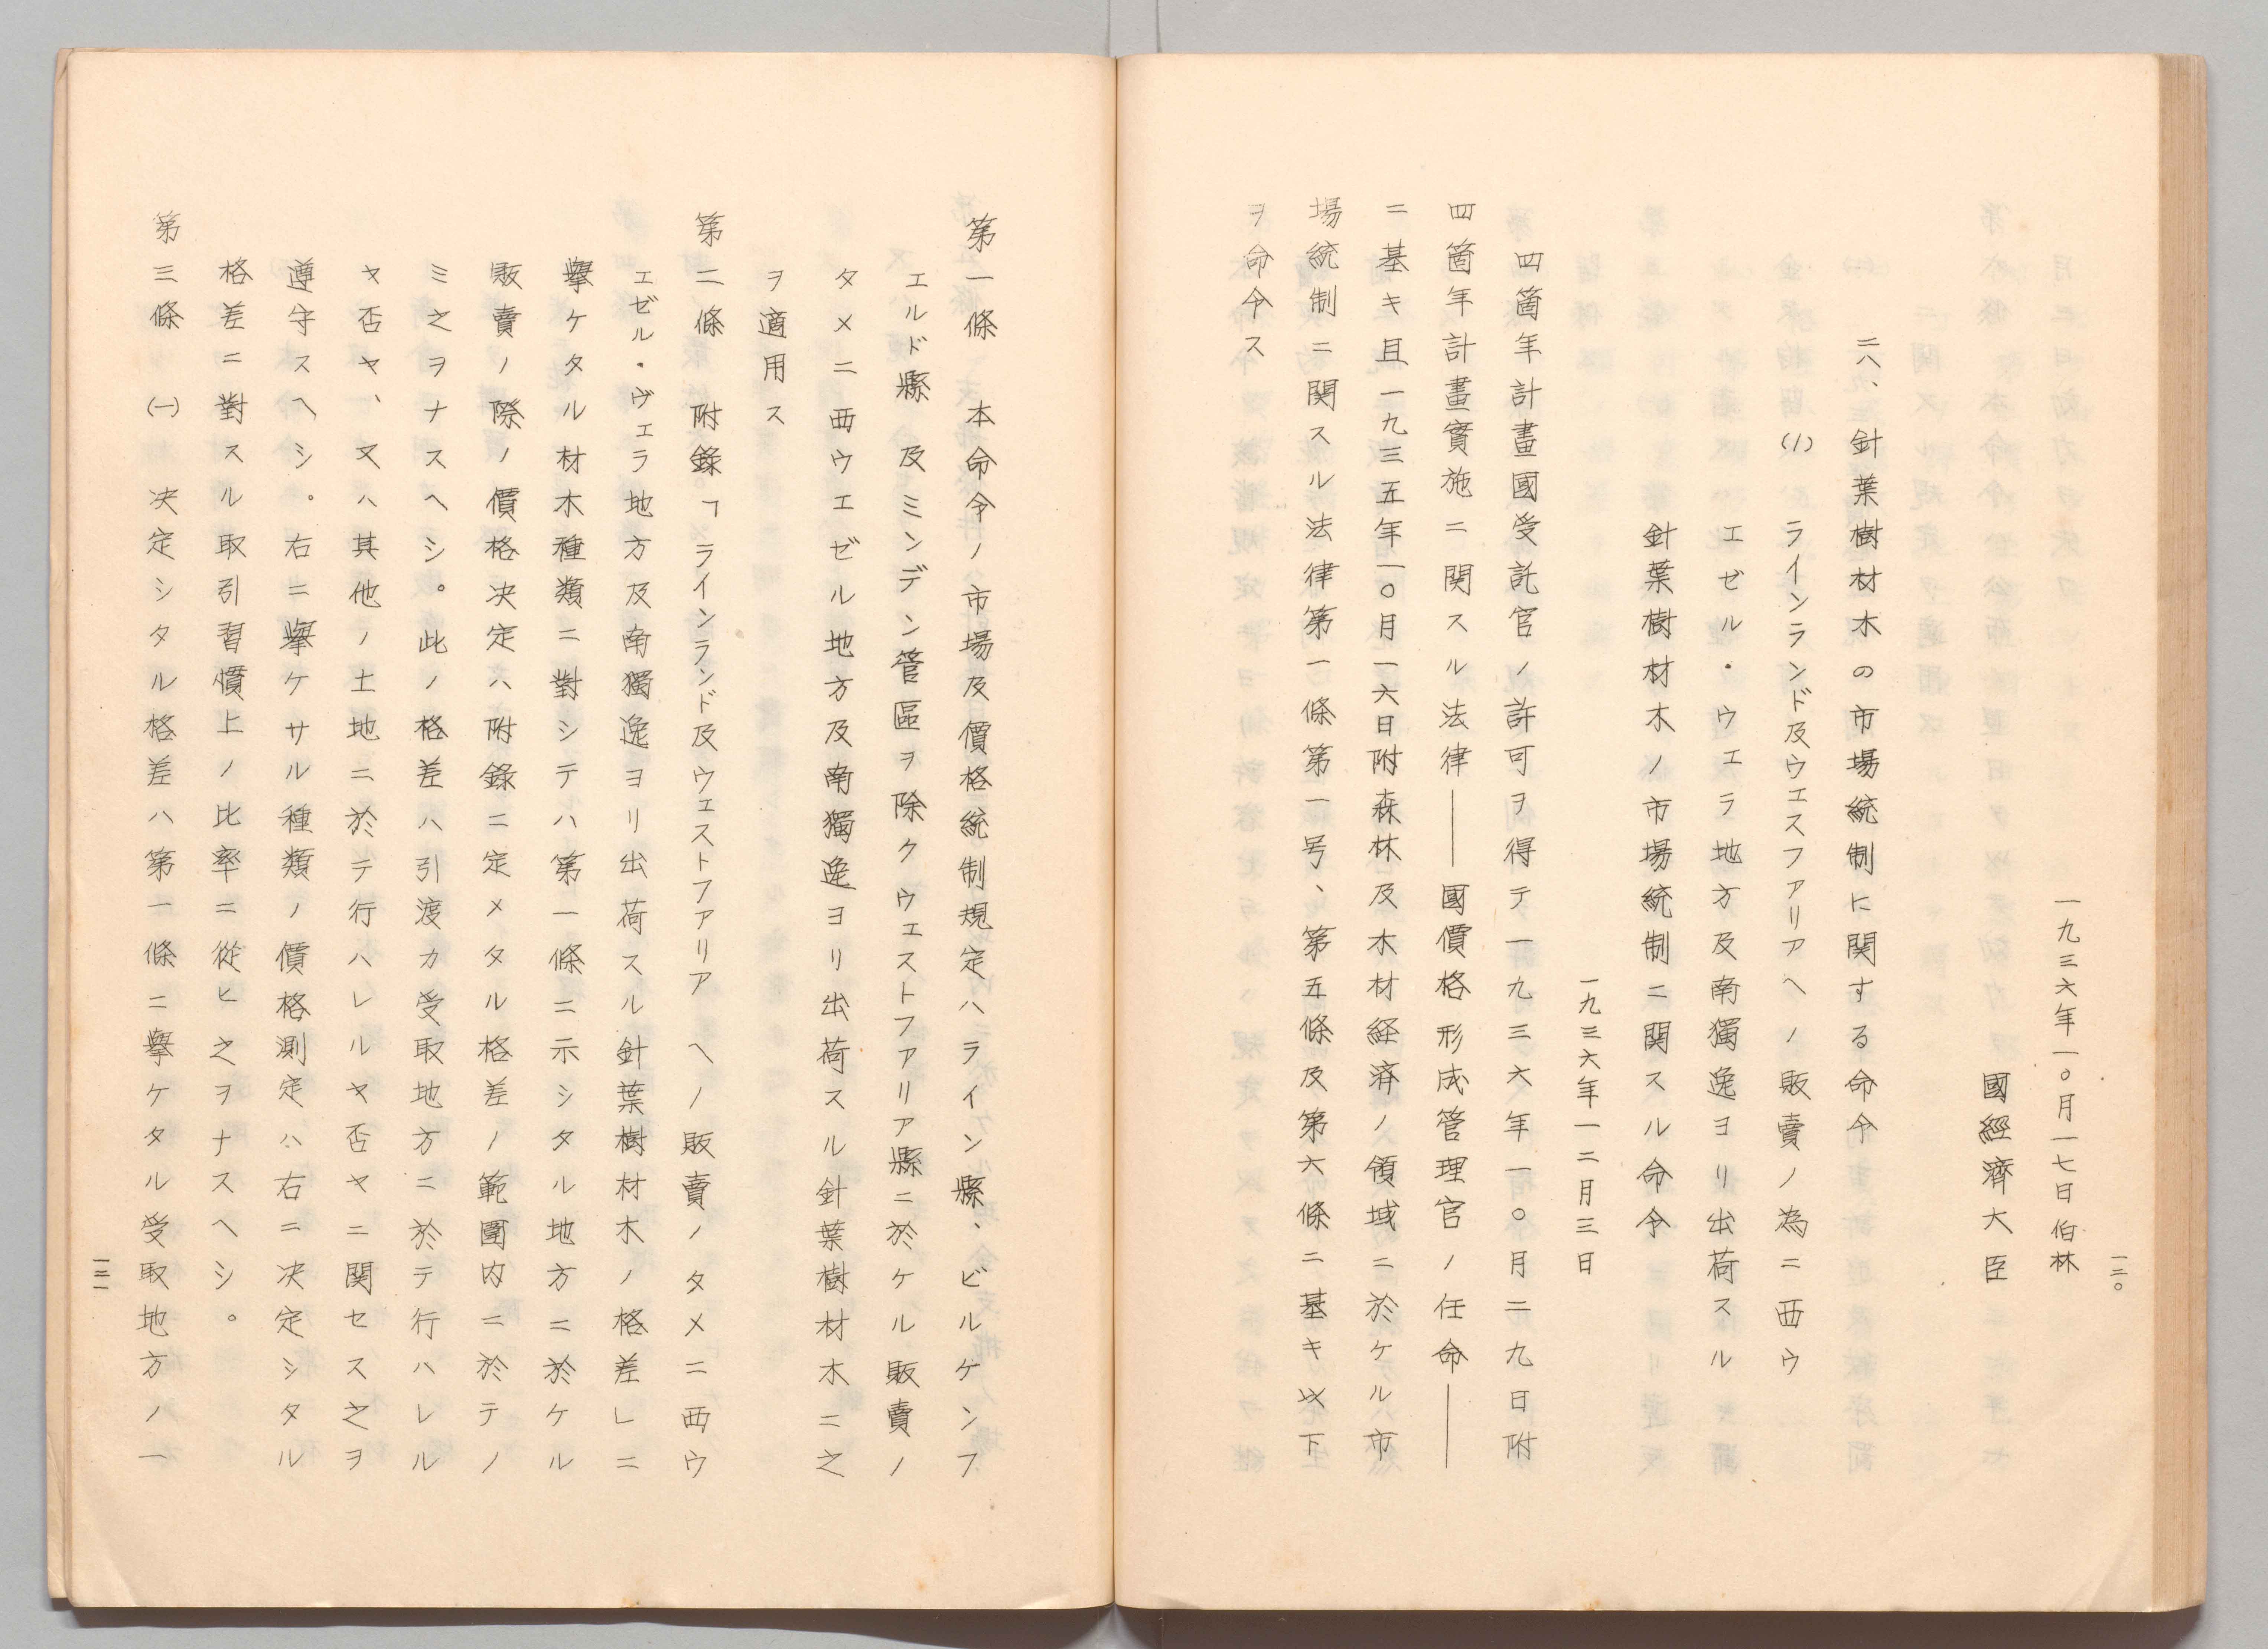 一二〇
一九三六年一〇月一七日伯林
國經濟大臣
二八、針葉樹材木の市場統制に関する命令
(1)　ラインランド及ウエスフアリアヘノ販賣ノ為ニ西ウ
エゼル・ウエラ地方及南獨逸ヨリ出荷スル
針葉樹材木ノ市場統制ニ関スル命令
一九三六年一二月三日
四箇年計畫國受託官ノ許可ヲ得テ一九三六年一〇月二九日附
四箇年計畫實施ニ関スル法律――國價格形成管理官ノ任命――
ニ基キ且一九三五年一〇月一六日附森林及木材経済ノ領域ニ於ケル市
場統制ニ関スル法律第一條第一号、第五條及第六條ニ基キ以下
ヲ命令ス
第一條　本命令ノ市場及價格統制規定ハライン縣、ビルケンフ
エルド縣及ミンデン管區ヲ除クウエストフアリア縣ニ於ケル販賣ノ
タメニ西ウエゼル地方及南獨逸ヨリ出荷スル針葉樹材木ニ之
ヲ適用ス
第二條　附錄「ラインランド及ウエストフアリアヘノ販賣ノタメニ西ウ
エゼル・ヴエラ地方及南獨逸ヨリ出荷スル針葉樹材木ノ格差」ニ
擧ケタル材木種類ニ對シテハ第一條ニ示シタル地方ニ於ケル
販賣ノ際ノ價格決定ハ附錄ニ定メタル格差ノ範圍内ニ於テノ
ミ之ヲナスヘシ。此ノ格差ハ引渡カ受取地方ニ於テ行ハレル
ヤ否ヤ、又ハ其他ノ土地ニ於テ行ハレルヤ否ヤニ関セス之ヲ
遵守スヘシ。右ニ擧ケサル種類ノ價格測定ハ右ニ決定シタル
格差ニ對スル取引習慣上ノ比率ニ從ヒ之ヲナスヘシ。
第三條　(一)　決定シタル格差ハ第一條ニ擧ケタル受取地方ノ一
一三一